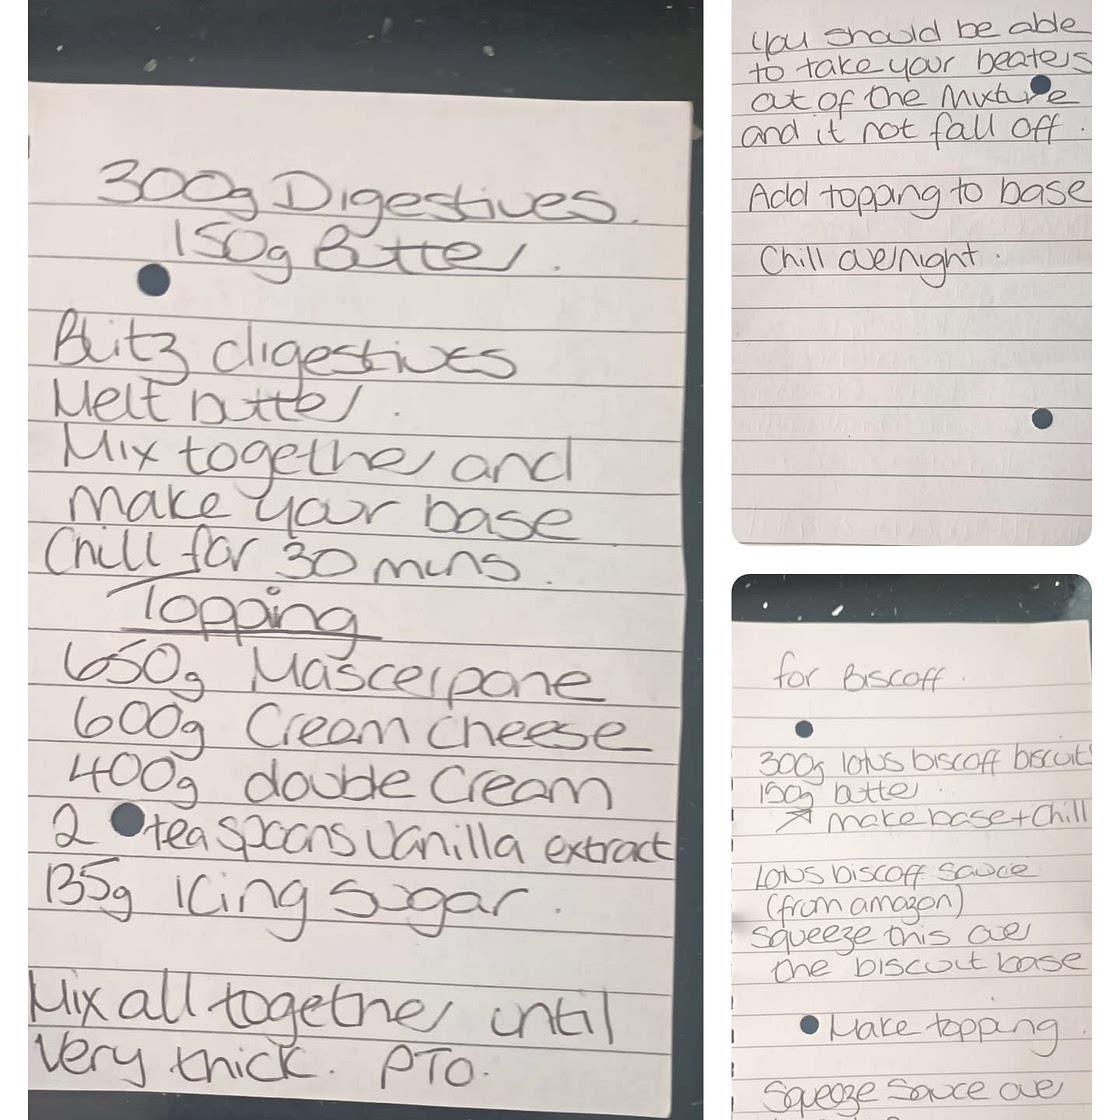 300g Digestives.
150g Butter.
Blitz digestives
Melt butter.
Mix together and
make your base
Chill for 30 mins.
Topping
650g Mascerpone
600g Cream cheese
400g double cream
2 teaspoons vanilla extract
135g icing sugar.
Mix all together until
very thick. PTO.
You should be able
to take your beaters
out of the mixture
and it not fall off.
Add topping to base
Chill overnight.
for Biscoff.
300g lotus biscoff biscuit
150g butter.
make base + chill
Lotus biscoff sauce
(from amazon)
squeeze this over
the biscuit base
Make topping.
Squeeze sauce over